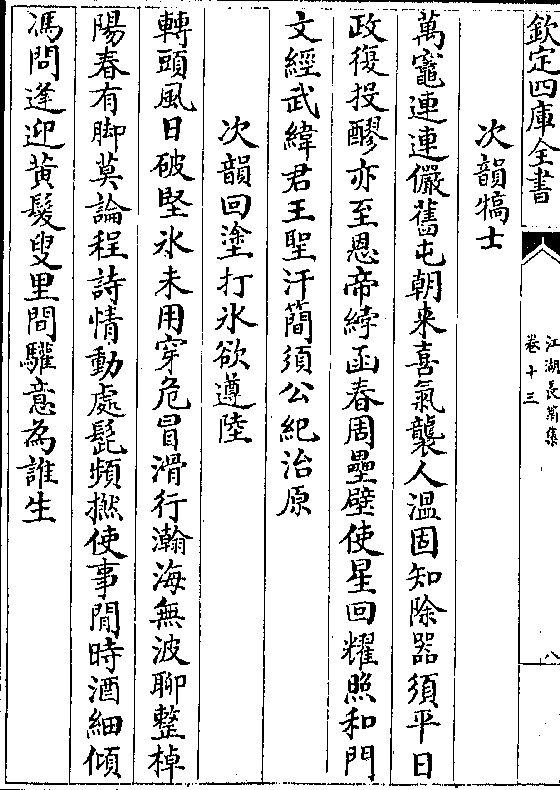 欽定四庫全書
江湖長翁集
卷十三
八
次韻犒士
萬竈連連儼舊屯朝来喜氣襲人溫固知除器須平日
政復投醪亦至恩帝綍函春周壘壁使星回耀照和門
文經武緯君王聖汗簡須公紀治原
次韻回塗打氷欲遵陸
轉頭風日破堅氷未用穿危冒滑行瀚海無波聊整棹
陽春有脚莫論程詩情動處髭頻撚使事閒時酒細傾
馮問逢迎黄髮叟里閭驩意為誰生